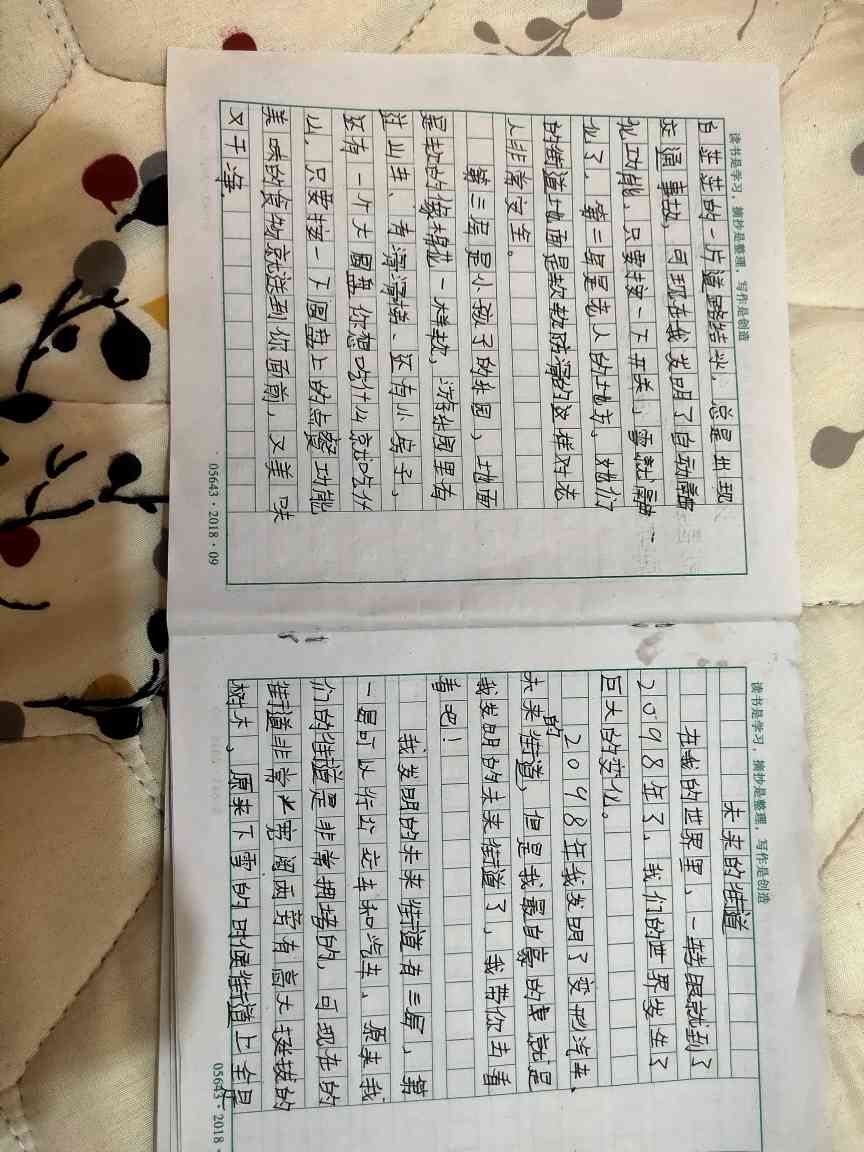 读书是学习，摘抄是整理，写作是创造
未来的街道
在我的世界里，一转眼就到了
2098年了，我们的世界发生了
巨大的变化。
2098年我发明了变形汽车、
未来的街道，但是我最自豪的就是
我发明的未来街道了，我带你去看
看吧！
我发明的未来街道有三层，第
一层可以行公交车和汽车，原来我
们的街道是非常拥堵的，可现在的
街道非常宽阔两旁有高大挺拔的
树木，原来下雪的时候街道上全是
05643·2018·
读书是学习，摘抄是整理，写作是创造
白茫茫的一片道路结冰，总是出现
交通事故，可现在我发明了自动融
化功能，只要按一下开关，雪就融
化了，第二层是老人的地方，她们
的街道地面是软软防滑的这样对老
人非常安全。
第三层是小孩子的乐园，地面
是软的像棉花一样软，游乐园里有
过山车、有滑滑梯、还有小房子、
还有一个大圆盘你想吃什么就吃什
么，只要按一下圆盘上的点餐功能
美味的食物就送到你面前，又美味
又干净．
05643·2018·09